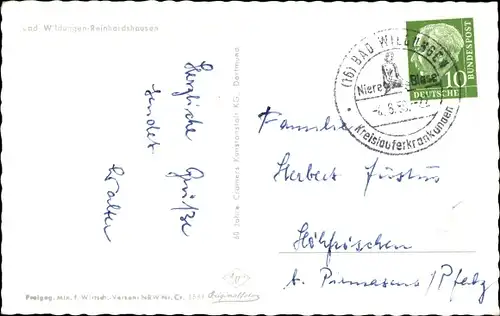 Bad Wildungen-Reinhardshausen
Herzliche Grüße
sendet
Walter
60 Jahre Cramers Kunstanstalt KG., Dortmund
Freigeg. Min. f. Wirtsch. Verssm. NRW Nr. Cr.
Originalfoto
(16) BAD WILDUNGEN
Niere Blase
Kreislauferkrankungen
10
DEUTSCHE
BUNDESPOST
Familie
Herbert Justus
Höhfröschen
b. Pirmasens/Pfalz